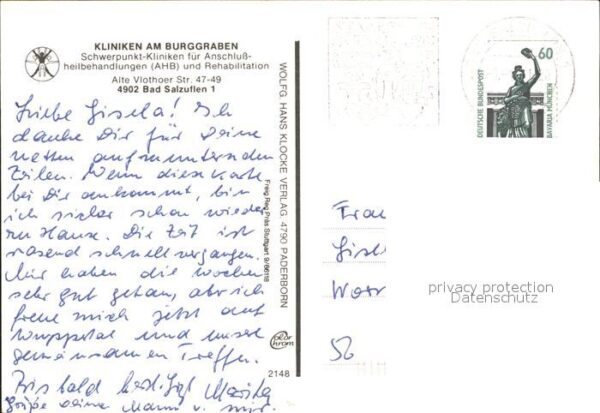 KLINIKEN AM BURGGRABEN
Schwerpunkt-Kliniken für Anschluß-
heilbehandlungen (AHB) und Rehabilitation
Alte Vlothoer Str. 47-49
4902 Bad Salzuflen 1
Liebe Gisela! Ich
danke Dir für Deine
netten aufmunternden
Zeilen. Wenn diese Karte
bei Dir ankommt, bin
ich sicher schon wieder
zu Hause. Die Zeit ist
rasend schnell vergangen.
Mir haben die Wochen
sehr gut getan, aber ich
freue mich jetzt auf
Wuppertal und unser
gemeinsames Treffen.
Bis bald herzl. Marita
Grüße Deine Mann v. mir.
WOLFG. HANS KLOCKE VERLAG, 4790 PADERBORN
Freig. Reg. Präs Stuttgart
color
chrom
2148
60
DEUTSCHE BUNDESPOST
BAVARIA MÜNCHEN
Frau
Gisel
56
privacy protection
Datenschutz